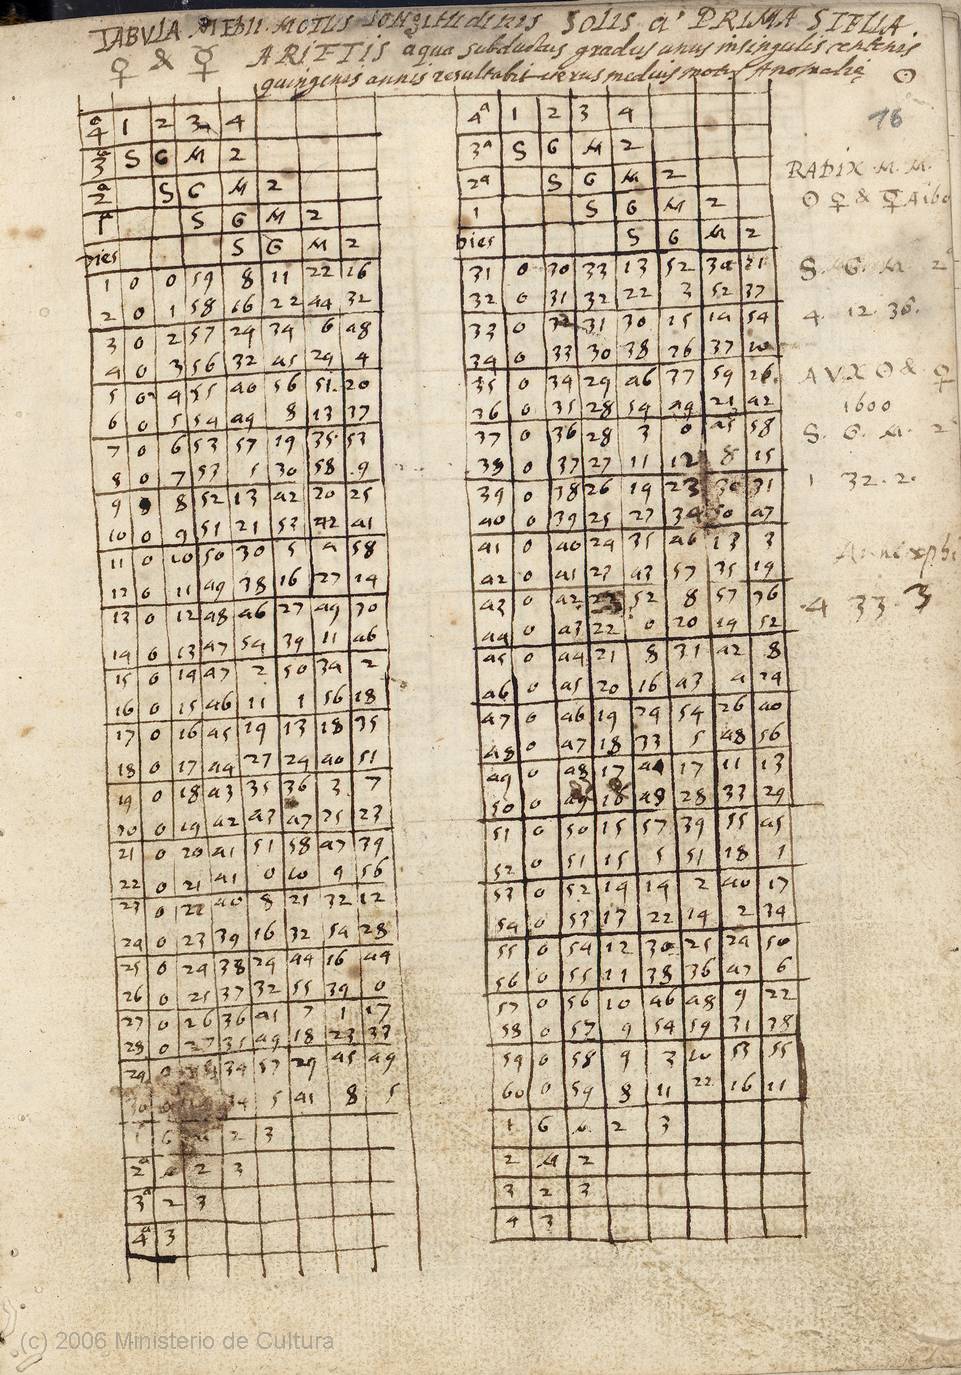 TABVLA MEDII MOTUS LONGITUDINIS SOLIS a' PRIMA STELLA
♀ & ☿ ARIETIS a qua subductus gradus unus in singulis centenis
quingenis annis resultabit verus medius motus Anomaliæ ☉
4ª 1 2 3 4
3ª S G M 2
2ª S G M 2
1ª S G M 2
Dies S G M 2
1 0 0 59 8 11 22 16
2 0 1 58 16 22 44 32
3 0 2 57 24 34 6 48
4 0 3 56 32 45 29 4
5 0 4 55 40 56 51 20
6 0 5 54 49 8 13 37
7 0 6 53 57 19 35 53
8 0 7 53 5 30 58 9
9 0 8 52 13 42 20 25
10 0 9 51 21 53 42 41
11 0 10 50 30 5 4 58
12 0 11 49 38 16 27 14
13 0 12 48 46 27 49 30
14 0 13 47 54 39 11 46
15 0 14 47 2 50 34 2
16 0 15 46 11 1 56 18
17 0 16 45 19 13 18 35
18 0 17 44 27 24 40 51
19 0 18 43 35 36 3 7
20 0 19 42 43 47 25 23
21 0 20 41 51 58 47 39
22 0 21 41 0 10 9 56
23 0 22 40 8 21 32 12
24 0 23 39 16 32 54 28
25 0 24 38 24 44 16 44
26 0 25 37 32 55 39 0
27 0 26 36 41 7 1 17
28 0 27 35 49 18 23 33
29 0 34 57 29 45 49
30 0 34 5 41 8 5
1 G M 2 3
2ª M 2 3
3ª 2 3
4ª 3
4ª 1 2 3 4
3ª S G M 2
2ª S G M 2
1 S G M 2
Dies S G M 2
31 0 30 33 13 52 30 21
32 0 31 32 22 3 52 37
33 0 32 31 30 15 14 54
34 0 33 30 38 26 37 10
35 0 34 29 46 37 59 26
36 0 35 28 54 49 21 42
37 0 36 28 3 0 45 58
38 0 37 27 11 12 8 15
39 0 38 26 19 23 30 31
40 0 39 25 27 34 50 47
41 0 40 24 35 46 13 3
42 0 41 23 43 57 35 19
43 0 42 52 8 57 36
44 0 43 22 0 20 19 52
45 0 44 21 8 31 42 8
46 0 45 20 16 43 4 24
47 0 46 19 24 54 26 40
48 0 47 18 33 5 48 56
49 0 48 17 41 17 11 13
50 0 49 16 49 28 33 29
51 0 50 15 57 39 55 45
52 0 51 15 5 51 18 1
53 0 52 14 14 2 40 17
54 0 53 13 22 14 2 34
55 0 54 12 30 25 24 50
56 0 55 11 38 36 47 6
57 0 56 10 46 48 9 22
58 0 57 9 54 59 31 38
59 0 58 9 3 10 53 55
60 0 59 8 11 22 16 11
1 G M 2 3
2 M 2
3 2 3
4 3
16
RADIX M. M.
☉ ♀ & ☿ A 1600
S. G. M. 2
4. 12. 36.
AVX ☉ & ♀
1600
S. G. M. 2
1 32. 2.
4 33. 3
(c) 2006 Ministerio de Cultura